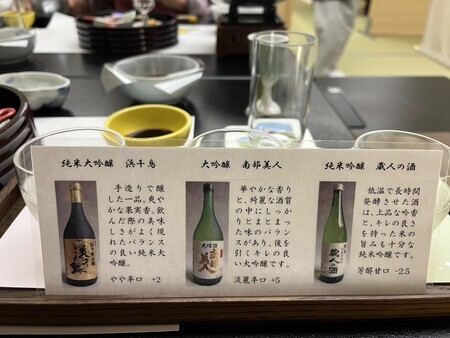 純米大吟醸 浜千鳥
手造りで醸
した一品。爽や
かな果実香、飲
んだ際の美味
しさがよく現
れたバランス
の良い純米大
吟醸。
やや辛口 +2
大吟醸 南部美人
華やかな香り
と、綺麗な酒質
の中にしっか
りとまとまっ
た味のバラン
スがあり、後を
引くキレの良
い大吟醸です。
淡麗辛口 +5
大吟醸
南部美人
純米吟醸 蔵人の酒
低温で長時間
発酵させた酒
は、上品な吟香
と、キレの良さ
を持った米の
旨みも十分な
純米吟醸です。
芳醇甘口 -2.5
蔵人の酒